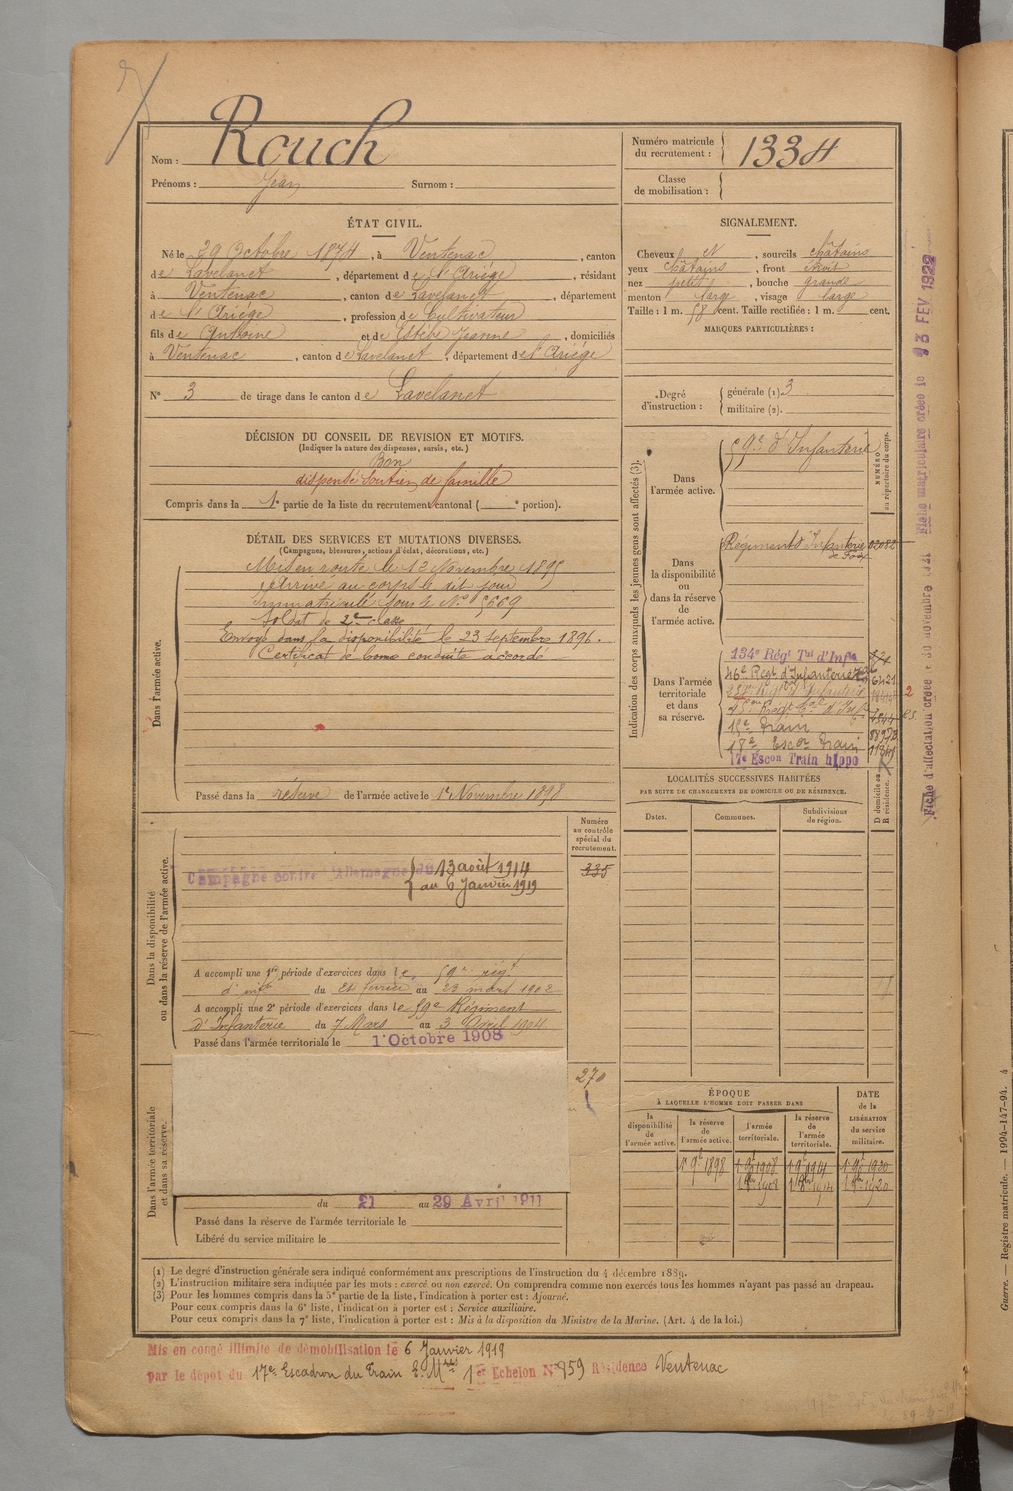 Nom : Rouch
Prénoms : Jean Surnom :
Numéro matricule
du recrutement : 1334
Classe
de mobilisation :
ÉTAT CIVIL.
Né le 29 Octobre 1874, à Ventenac, canton
de Lavelanet, département de l'Ariège, résidant
à Ventenac, canton de Lavelanet, département
de l'Ariège, profession de Cultivateur
fils de Antoine et de Estèbe Jeanne, domiciliés
à Ventenac, canton de Lavelanet, département de l'Ariège
N° 3 de tirage dans le canton de Lavelanet
SIGNALEMENT.
Cheveux N, sourcils châtains
yeux châtains, front étroit
nez petit, bouche grande
menton large, visage large
Taille : 1 m. 58 cent. Taille rectifiée : 1 m. cent.
MARQUES PARTICULIÈRES :
Degré
d'instruction :
générale (1) 3
militaire (2).
DÉCISION DU CONSEIL DE REVISION ET MOTIFS.
(Indiquer la nature des dispenses, sursis, etc.)
Bon
dispensé soutien de famille
Compris dans la 1e partie de la liste du recrutement cantonal ( e portion).
DÉTAIL DES SERVICES ET MUTATIONS DIVERSES.
(Campagnes, blessures, actions d'éclat, décorations, etc.)
Dans l'armée active.
Mis en route le 12 Novembre 1895
Arrivé au corps le dit jour
Immatriculé sous le N° 5669
Soldat de 2me classe
Envoyé dans la disponibilité le 23 septembre 1896.
Certificat de bonne conduite accordé
Passé dans la réserve de l'armée active le 1er Novembre 1898
Indication des corps auxquels les jeunes gens sont affectés (3).
NUMÉRO
au répertoire du corps.
Dans
l'armée active.
59e d'Infanterie
Dans
la disponibilité
ou
dans la réserve
de
l'armée active.
Régiment d'Infanterie
Dans l'armée
territoriale
et dans
sa réserve.
134e Régt Tal d'Infie
46e Regt d'Infanterie
15e Train
18e Escon Train
17e Escon Train hippo
LOCALITÉS SUCCESSIVES HABITÉES
PAR SUITE DE CHANGEMENTS DE DOMICILE OU DE RÉSIDENCE.
Dates.
Communes.
Subdivisions
de région.
D domicile ou
R résidence.
Dans la disponibilité
ou dans la réserve de l'armée active.
Numéro
au contrôle
spécial du
recrutement.
335
Campagne contre l'Allemagne du 13 août 1914
au 6 Janvier 1919
A accompli une 1re période d'exercices dans le 59e régt
d'infie du 24 février au 23 mars 1902
A accompli une 2e période d'exercices dans le 59e Régiment
d'Infanterie du 7 Mars au 3 Avril 1904
Passé dans l'armée territoriale le 1 Octobre 1908
270
Dans l'armée territoriale
et dans sa réserve.
du 21 au 29 Avril 1911
Passé dans la réserve de l'armée territoriale le
Libéré du service militaire le
ÉPOQUE
À LAQUELLE L'HOMME DOIT PASSER DANS
DATE
de la
LIBÉRATION
du service
militaire.
la
disponibilité
de
l'armée active.
la réserve
de
l'armée active.
l'armée
territoriale.
la réserve
de
l'armée
territoriale.
1er 9e 1898 1 9e 1908 1 9e 1914 1 9e 1920
(1) Le degré d'instruction générale sera indiqué conformément aux prescriptions de l'instruction du 4 décembre 1889.
(2) L'instruction militaire sera indiquée par les mots : exercé ou non exercé. On comprendra comme non exercés tous les hommes n'ayant pas passé au drapeau.
(3) Pour les hommes compris dans la 5e partie de la liste, l'indication à porter est : Ajourné.
Pour ceux compris dans la 6e liste, l'indication à porter est : Service auxiliaire.
Pour ceux compris dans la 7e liste, l'indication à porter est : Mis à la disposition du Ministre de la Marine. (Art. 4 de la loi.)
Mis en congé illimité de démobilisation le 6 Janvier 1919
par le dépôt du 17e Escadron du Train 1er Echelon N° 859 Résidence Ventenac
Fiche matriculaire créée le 13 FEV 1922
Fiche d'affectation créée le 30 novembre 1921
Guerre. — Registre matricule. — 1994-147-94. 4